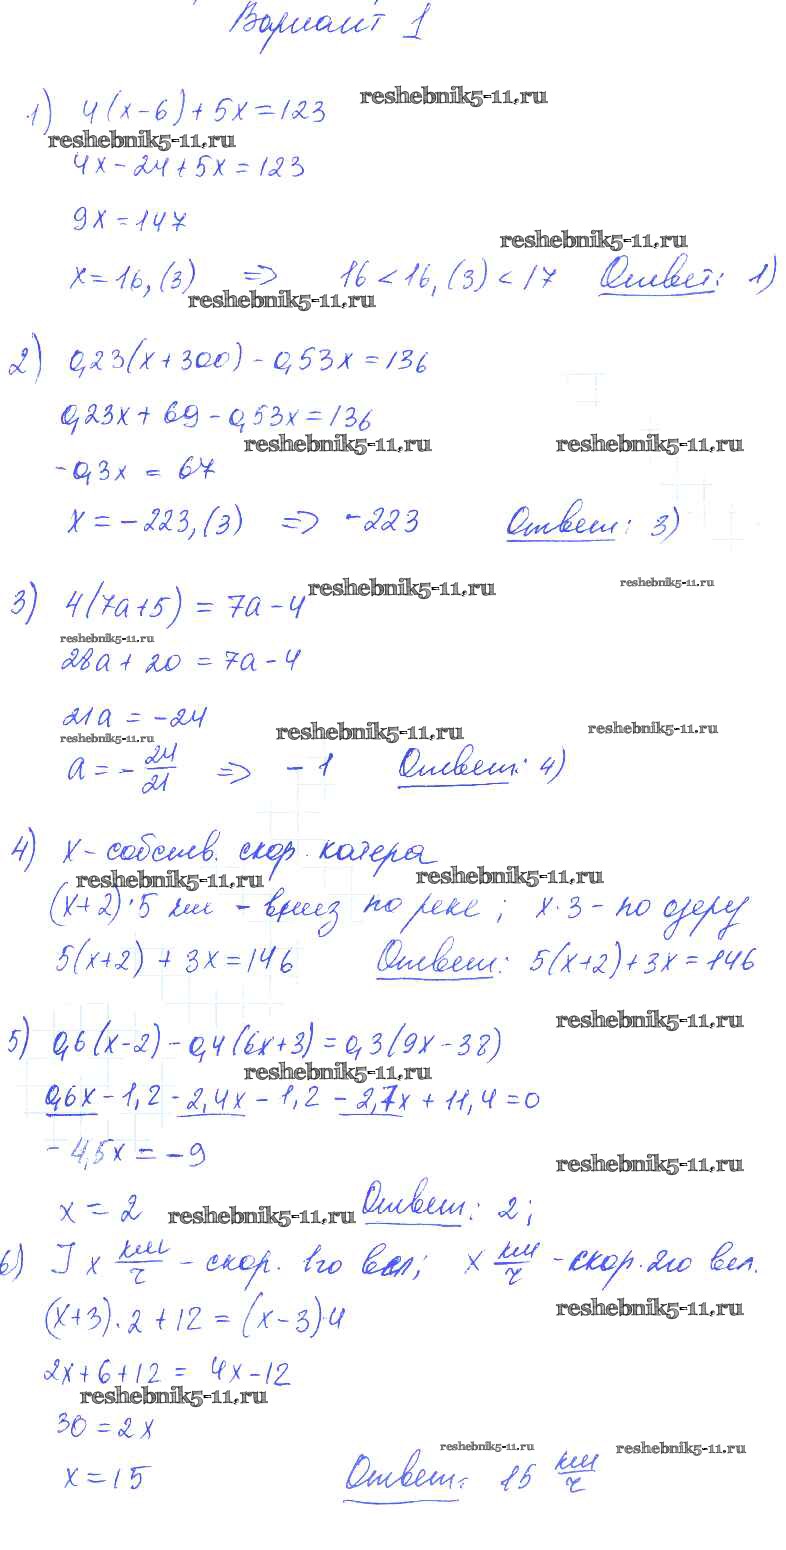 Вариант 1
1) 4(x-6)+5x=123 reshebnik5-11.ru
reshebnik5-11.ru
4x-24+5x=123
9x=147
reshebnik5-11.ru
x=16,(3) => 16<16,(3)<17 Ответ: 1)
reshebnik5-11.ru
2) 0,23(x+300)-0,53x=136
0,23x+69-0,53x=136
reshebnik5-11.ru reshebnik5-11.ru
-0,3x = 67
x=-223,(3) => -223 Ответ: 3)
reshebnik5-11.ru reshebnik5-11.ru
3) 4(7a+5) = 7a-4
reshebnik5-11.ru
28a+20 = 7a-4
21a = -24
reshebnik5-11.ru reshebnik5-11.ru reshebnik5-11.ru
a=-24/21 => -1 Ответ: 4)
4) x - собств. скор. катера
reshebnik5-11.ru reshebnik5-11.ru
(x+2)·5 км - вниз по реке; x·3 - по озеру
5(x+2) + 3x=146 Ответ: 5(x+2)+3x=146
reshebnik5-11.ru
5) 0,6(x-2)-0,4(6x+3)=0,3(9x-38)
reshebnik5-11.ru
0,6x-1,2-2,4x-1,2-2,7x+11,4=0
-4,5x=-9
reshebnik5-11.ru
x=2 reshebnik5-11.ru Ответ: 2;
6) I x км/ч - скор. 1го вел; x км/ч - скор. 2го вел.
reshebnik5-11.ru
(x+3)·2+12=(x-3)·4
2x+6+12= 4x-12
reshebnik5-11.ru
30=2x
reshebnik5-11.ru reshebnik5-11.ru
x=15 Ответ: 15 км/ч